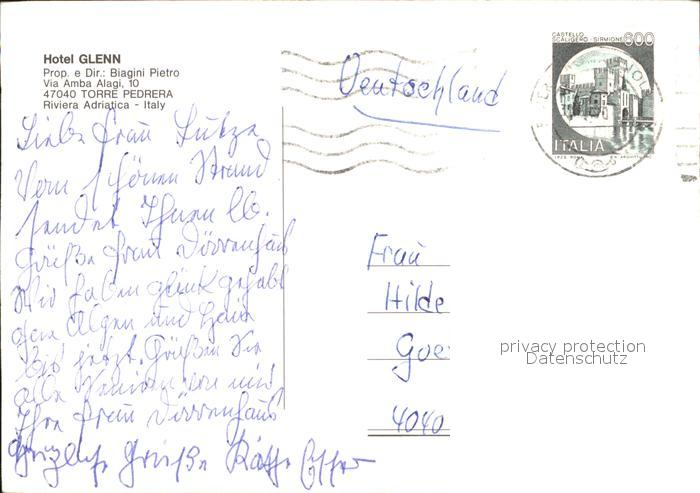 Hotel GLENN
Prop. e Dir.: Biagini Pietro
Via Amba Alagi, 10
47040 TORRE PEDRERA
Riviera Adriatica - Italy
Deutschland
CASTELLO
SCALIGERO - SIRMIONE 600
ITALIA
Liebe Frau Lutze
Vom schönen Strand
sendet Ihnen lb.
Grüße Frau Dörrenhaus
Wir haben glück gehabt
keine Algen und
bis jetzt. Grüßen Sie
alle Senioren von mir
Ihre Frau Dörrenhaus
Herzliche Grüße Käthe
Frau
Hilde
Goe
4040
privacy protection
Datenschutz